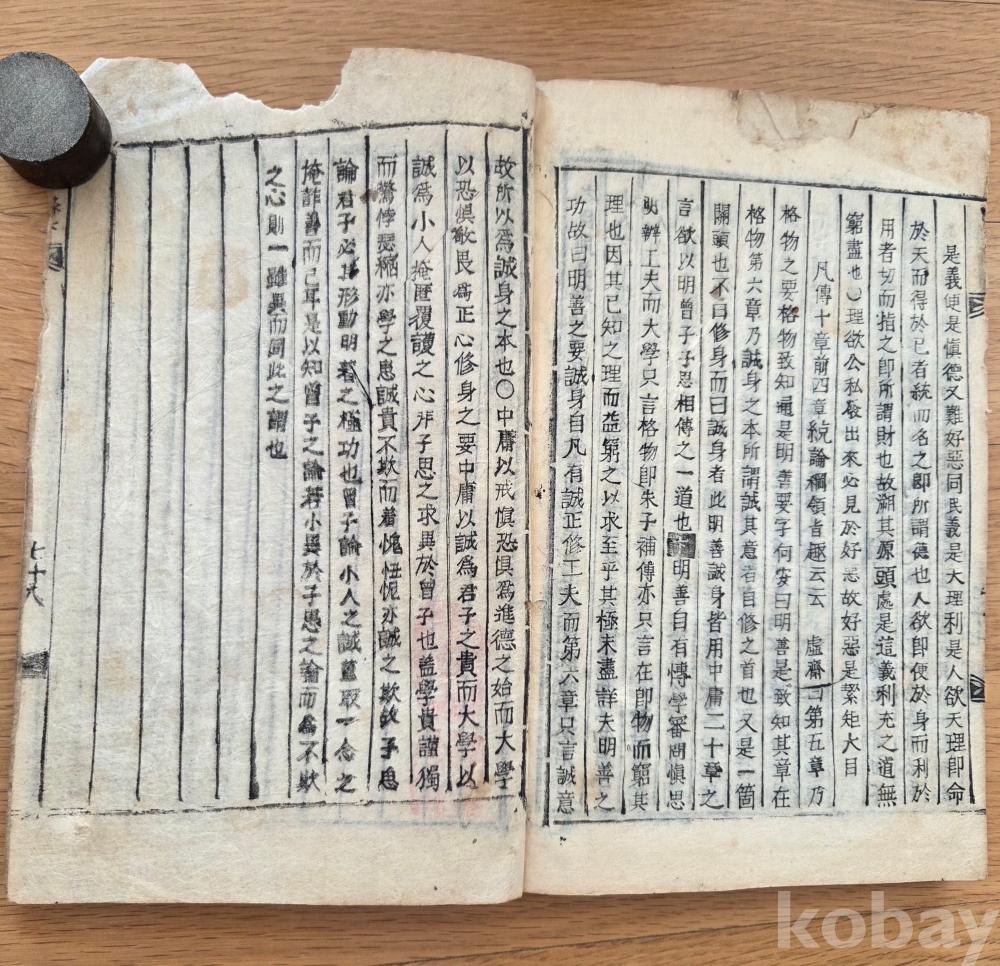 是義便是愼德又難好惡同民義是大理利是人欲天理卽命
於天而得於已者統而名之卽所謂德也人欲卽便於身而利於
用者切而指之卽所謂財也故溯其源頭處是這義利充之道無
窮盡也○理欲公私發出來必見於好惡故好惡是絜矩大目
凡傳十章前四章統論綱領旨趣云云 虛齋曰第五章乃
格物之要格物致知通是明善要字何安曰明善是致知其章在
格物第六章乃誠身之本所謂誠其意者自修之首也又是一箇
關頭也不曰修身而曰誠身者此明善誠身皆用中庸二十章之
言欲以明曾子子思相傳之一道也 明善自有博學審問愼思
明辨工夫而大學只言格物卽朱子補傳亦只言在卽物而窮其
理也因其已知之理而益窮之以求至乎其極未盡詳夫明善之
功故曰明善之要誠身自凡有誠正修工夫而第六章只言誠意
故所以爲誠身之本也○中庸以戒愼恐惧爲進德之始而大學
以恐惧敬畏爲正心修身之要中庸以誠爲君子之貴而大學以
誠爲小人掩匿覆護之心非子思之求異於曾子也盖學貴謹獨
而驚悸瑟縮亦學之患誠貴不欺而着愧忸怩亦誠之欺故子思
論君子必其形動明著之極功也曾子論小人之誠蓋取一念之
掩詐善而已耳是以知曾子之論若小異於子思之論而爲不欺
之心則一雖異而同此之謂也
七十八
kobay